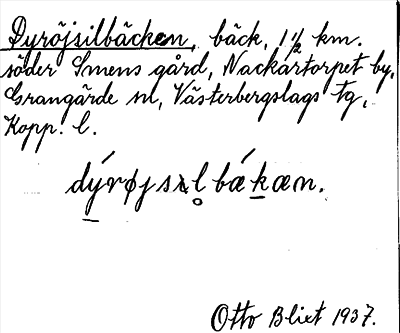 Dyröjsilbäcken, bäck, 1 1/2 km.
söder Smens gård, Nackartorpet by,
Grangärde sn, Västerbergslags tg,
Kopp. l.
dýrøjsɩl̥bǽkæn.
Otto Blixt 1937.